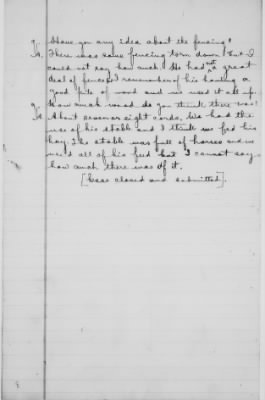 Q. Have you any idea about the fencing?
A. There was some fencing torn down but I
could not say how much. He had not a great
deal of fences. I remember of his hauling a
good pile of wood and we used it all up.
Q. How much wood do you think there was?
A. About seven or eight cords. We had the
use of his stable and I think we fed his
hay. The stable was full of horses and we
used all of his feed but I cannot say
how much there was of it.
[Case closed and submitted].